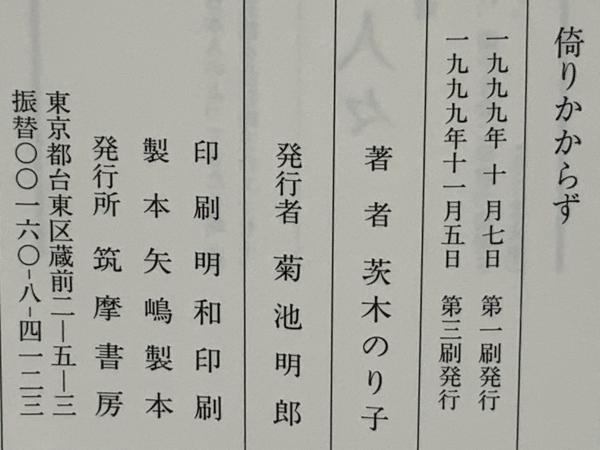 倚りかからず
一九九九年 十 月七日 第一刷発行
一九九九年十一月五日 第三刷発行
著 者 茨木のり子
発行者 菊池明郎
印 刷 明和印刷
製 本 矢嶋製本
発行所 筑摩書房
東京都台東区蔵前二―五―三
振替〇〇一六〇-八-四一二三